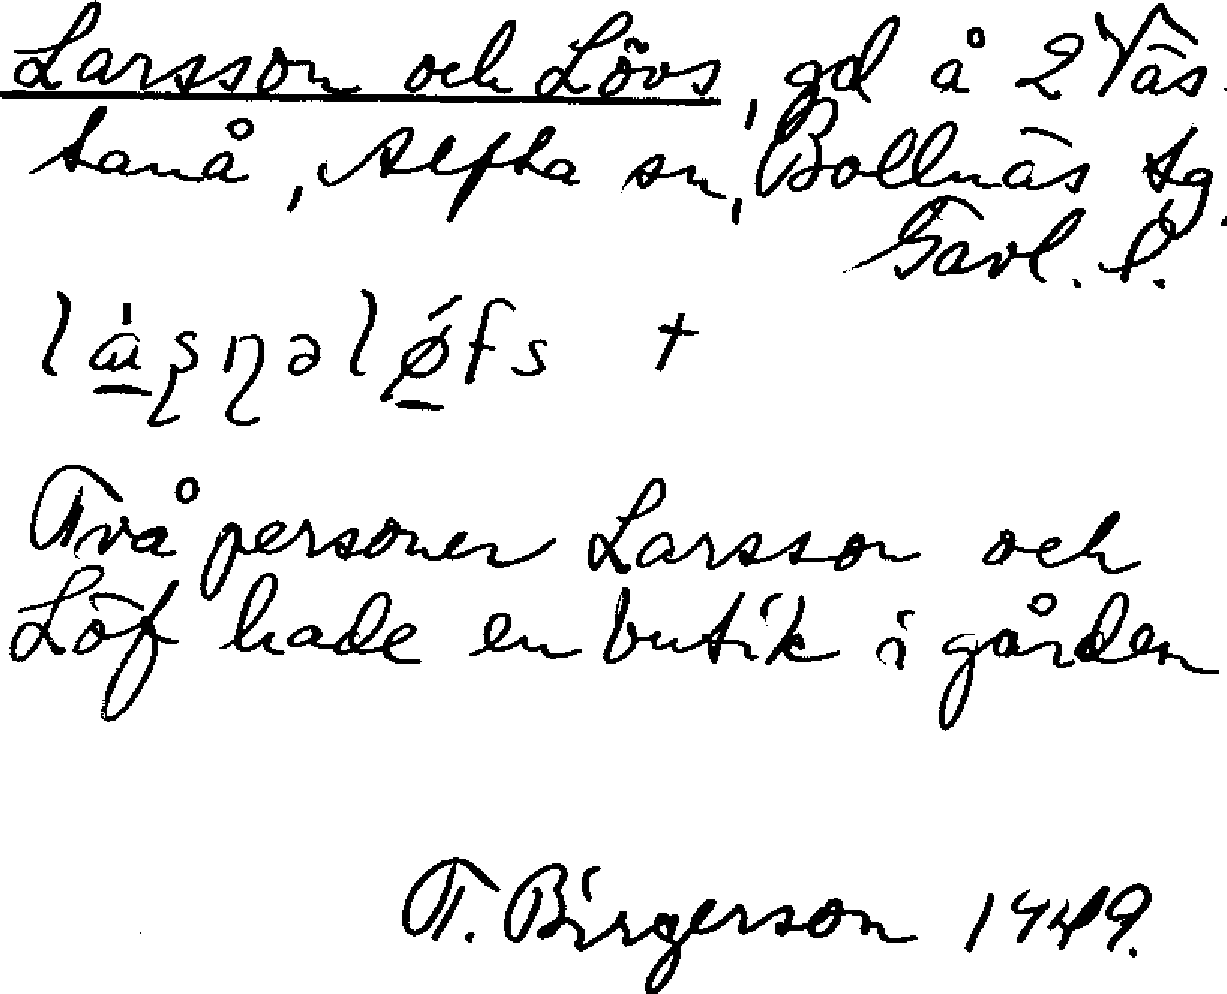 Larsson och Lövs, gd å 2 Väs-
tanå, Alfta sn, Bollnäs tg.
Gävl. l.
Två personer Larsson och
Löf hade en butik i gården
T. Birgerson 1949.